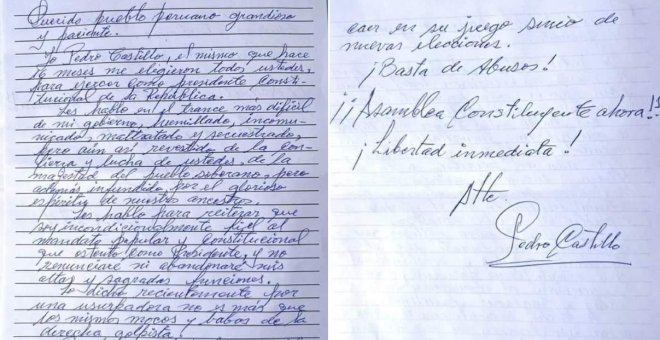 Querido pueblo peruano grandioso
y paciente.
Yo Pedro Castillo, el mismo que hace
16 meses me eligieron todos ustedes,
para ejercer como presidente Consti-
tucional de la República.
Les hablo en el trance más difícil
de mi gobierno, humillado, incomu-
nicado, maltratado y secuestrado,
pero aún así revestido de la con-
fianza y lucha de ustedes, de la
majestad del pueblo soberano, pero
además infundido por el glorioso
espíritu de nuestros ancestros.
Les hablo para reiterar que
soy incondicionalmente fiel al
mandato popular y constitucional
que ostento como Presidente, y no
renunciaré ni abandonaré mis
altas y sagradas funciones.
Lo dicho recientemente por
una usurpadora no es más que
los mismos mocos y babas de la
derecha golpista.
caer en su juego sucio de
nuevas elecciones.
¡Basta de Abusos!
¡¡Asamblea Constituyente ahora!!
¡Libertad inmediata!
Atte.
Pedro Castillo